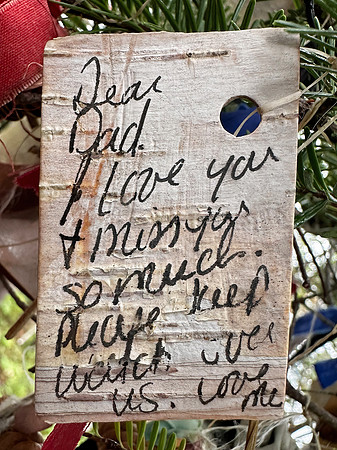 Dear
Dad.
I Love you
+ miss you
so much.
please keep
watch over
us. Love
me